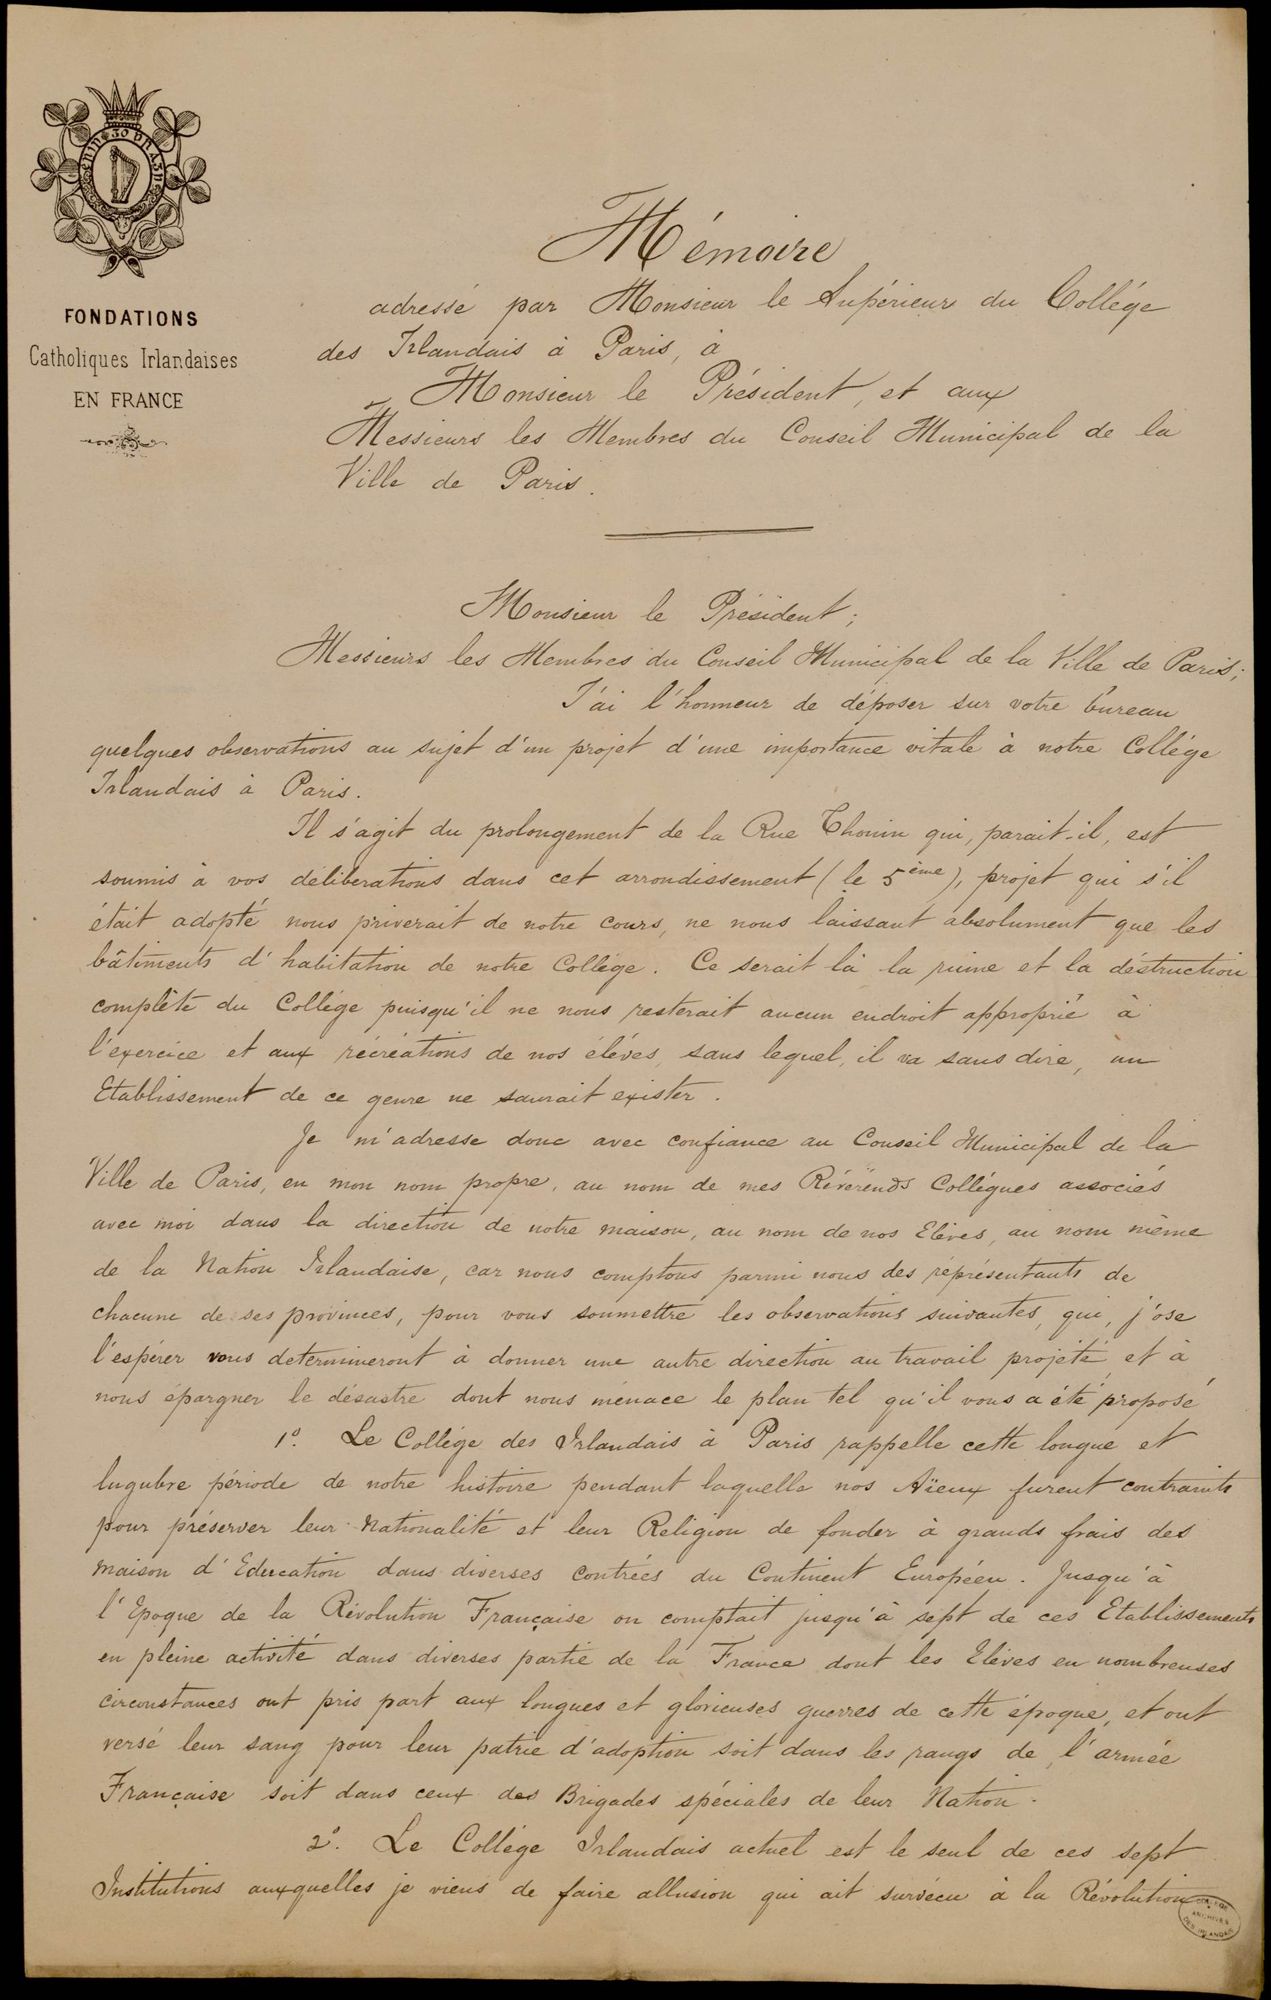 ERIN GO BRAGH
FONDATIONS
Catholiques Irlandaises
EN FRANCE
Mémoire
adressé par Monsieur le Supérieur du Collége
des Irlandais à Paris, à
Monsieur le Président, et aux
Messieurs les Membres du Conseil Municipal de la
Ville de Paris.
Monsieur le Président;
Messieurs les Membres du Conseil Municipal de la Ville de Paris;
J'ai l'honneur de déposer sur votre bureau
quelques observations au sujet d'un projet d'une importance vitale à notre Collége
Irlandais à Paris.
Il s'agit du prolongement de la Rue Thouin qui, parait-il, est
soumis à vos déliberations dans cet arrondissement (le 5ème), projet qui s'il
était adopté nous priverait de notre cours, ne nous laissant absolument que les
bâtiments d'habitation de notre Collége. Ce serait là la ruine et la déstruction
complète du Collége puisqu'il ne nous resterait aucun endroit approprié à
l'exercice et aux récréations de nos élèves, sans lequel, il va sans dire, un
Etablissement de ce genre ne saurait exister.
Je m'adresse donc avec confiance au Conseil Municipal de la
Ville de Paris, en mon nom propre, au nom de mes Révérends Collégues associés
avec moi dans la direction de notre maison, au nom de nos Elèves, au nom même
de la Nation Irlandaise, car nous comptons parmi nous des réprésentants de
chacune de ses provinces, pour vous soumettre les observations suivantes, qui, j'ose
l'espérer vous determineront à donner une autre direction au travail projeté, et à
nous épargner le désastre dont nous ménace le plan tel qu'il vous a été proposé
1º. Le Collége des Irlandais à Paris rappelle cette longue et
lugubre période de notre histoire pendant laquelle nos Aïeux furent contraints
pour préserver leur Nationalité et leur Religion de fonder à grands frais des
maison d'Education dans diverses contrées du Continent Européen. Jusqu'à
l'Epoque de la Révolution Française on comptait jusqu'à sept de ces Etablissements
en pleine activité dans diverses partie de la France dont les Elèves en nombreuses
circonstances ont pris part aux longues et glorieuses guerres de cette époque, et ont
versé leur sang pour leur patrie d'adoption soit dans les rangs de l'armée
Française soit dans ceux des Brigades spéciales de leur Nation.
2º. Le Collége Irlandais actuel est le seul de ces sept
Institutions auxquelles je viens de faire allusion qui ait survécu à la Révolution
COLLEGE
ARCHIVES
DES IRLANDAIS